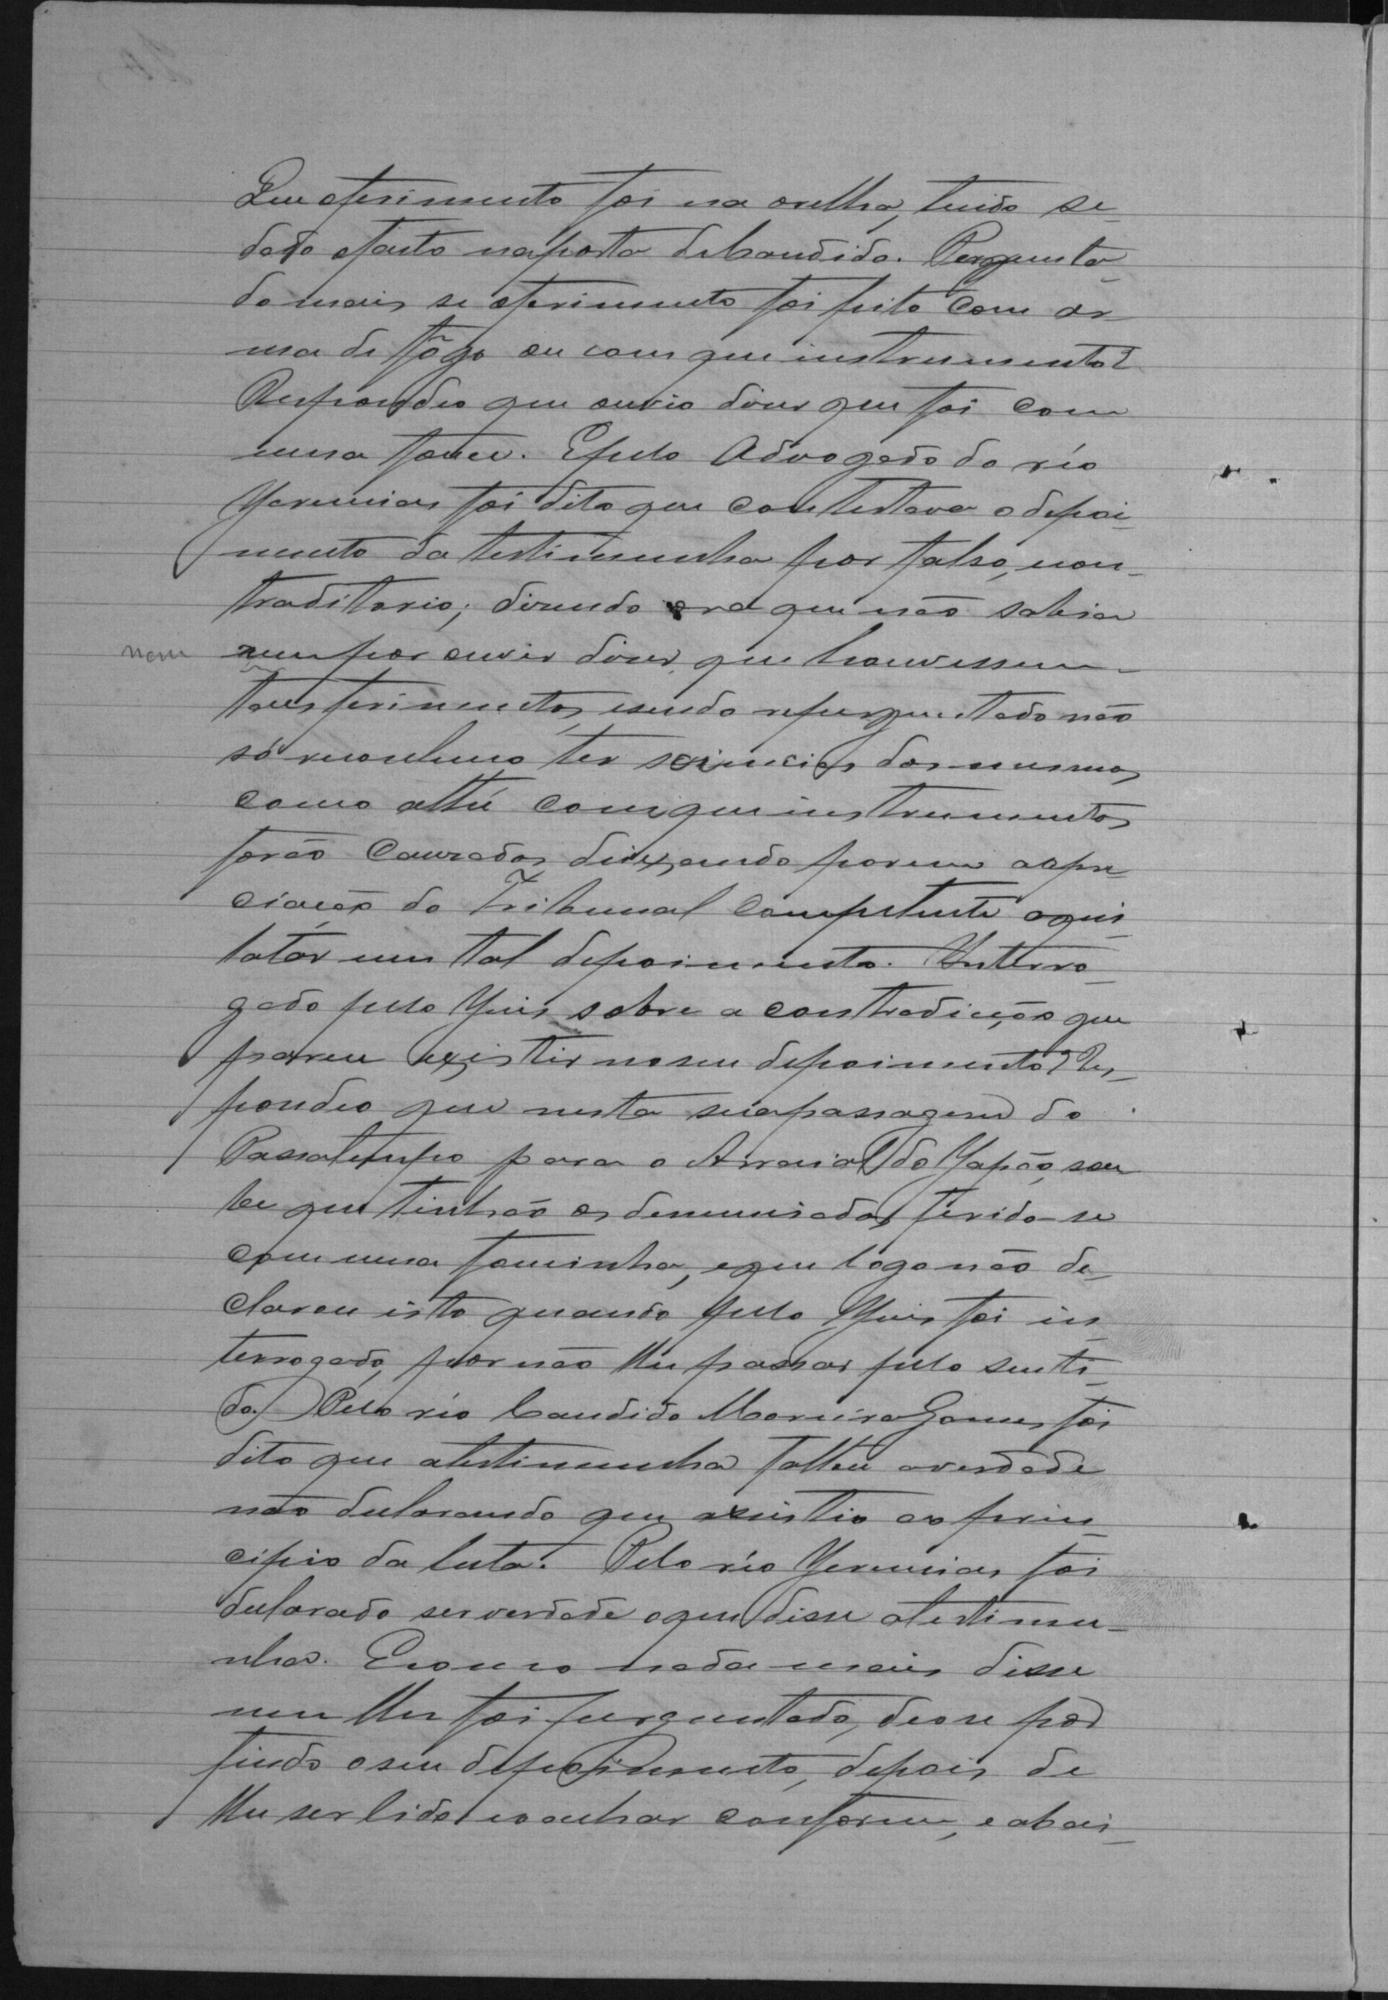 Que oferimento foi na orelha, tendo se
dado ofacto naporta deCandido. Pergunta
do mais se oferimento foi feito com ar
ma de fôgo ou com que instrumento?
Respondeo que ouvio diser que foi com
uma fouce. Epelo Advogado do réo
Yeremias foi dito que contestava o depoi
mento da testimunha por falso, con
traditorio; disendo ora que não sabia
nem
nem por ouvir diser, que houvessem
taes ferimentos, esendo reperguntado não
só reconheceo ter sciencias dos mesmos,
como athé com que instrumentos
forão causados, deixando porem a apre
ciação do Tribunal Competente aquis
latar um tal depoimento. Interro
gado pelo Yuis sobre a contradicção que
parece existir noseu depoimento? Res
pondeo que nesta suapassagem do
Passatempo para o Arraial do Yapão, sou
be que tinhão os denunciados ferido-se
com uma foucinha, eque logo não de
clarou isto quando pelo Yuis foi in
terrogado, por não lhe passar pelo senti
do. Pelo réo Candido Moreira Gomes foi
dito que atestimunha faltou averdade
não declarando que assistio ao prin
cipio da luta. Pelo réo Yeremias foi
declarado ser verdade oque disse atestimu
nha. Ecomo nada mais disse
nem lhe foi perguntado, deose por
findo oseu depoimento, depois de
lhe ser lido eo achar conforme, e abai